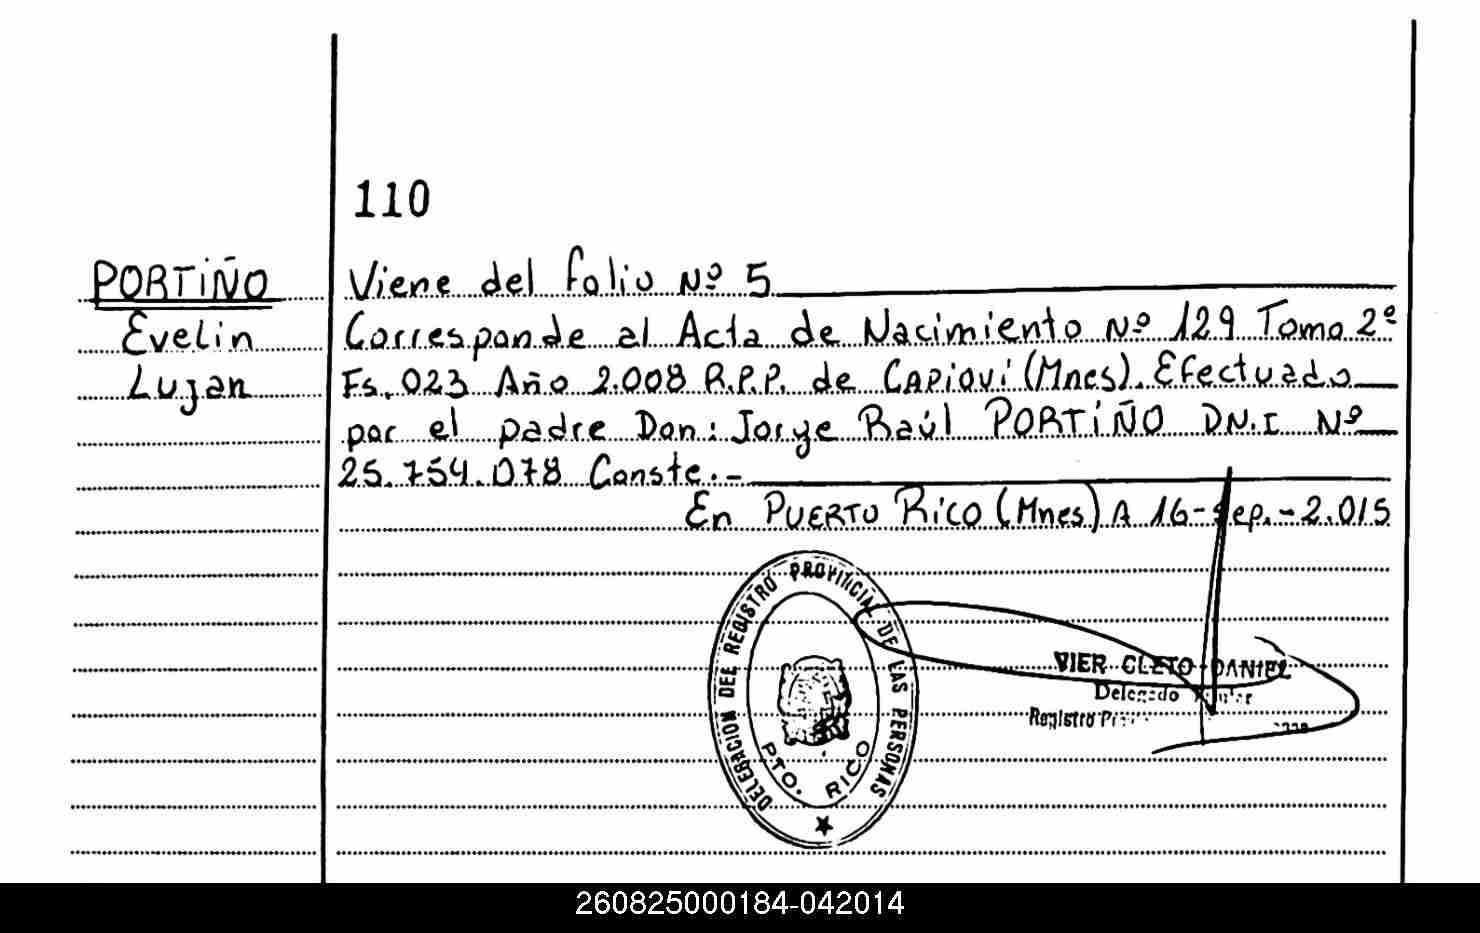 110
PORTIÑO
Evelin
Lujan
Viene del folio Nº 5
Corresponde al Acta de Nacimiento Nº 129 Tomo 2º
Fs. 023 Año 2.008 R.P.P. de CAPioví (Mnes). Efectuado
por el padre Don: Jorge Raúl PORTIÑO D.N.I. Nº
25.754.078 Conste.-
En PUERTO RICO (Mnes) A 16-Sep.-2.015
DELEGACION DEL REGISTRO PROVINCIAL DE LAS PERSONAS
PTO. RICO
VIER CLETO DANIEL
Delegado
Registro
260825000184-042014